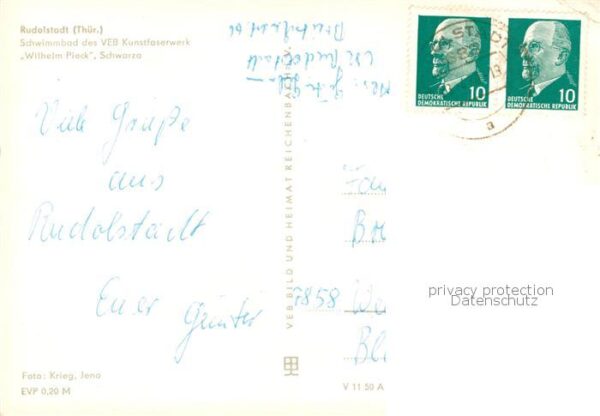 Rudolstadt (Thür.)
Schwimmbad des VEB Kunstfaserwerk
„Wilhelm Pieck", Schwarza
Viele Grüße
aus
Rudolstadt
Euer Günter
Foto: Krieg, Jena
EVP 0,20 M
VEB BILD UND HEIMAT REICHENBACH
V 11 50 A
Rudolstadt
10
DEUTSCHE
DEMOKRATISCHE REPUBLIK
10
DEUTSCHE
DEMOKRATISCHE REPUBLIK
a
Fam
7858
privacy protection
Datenschutz